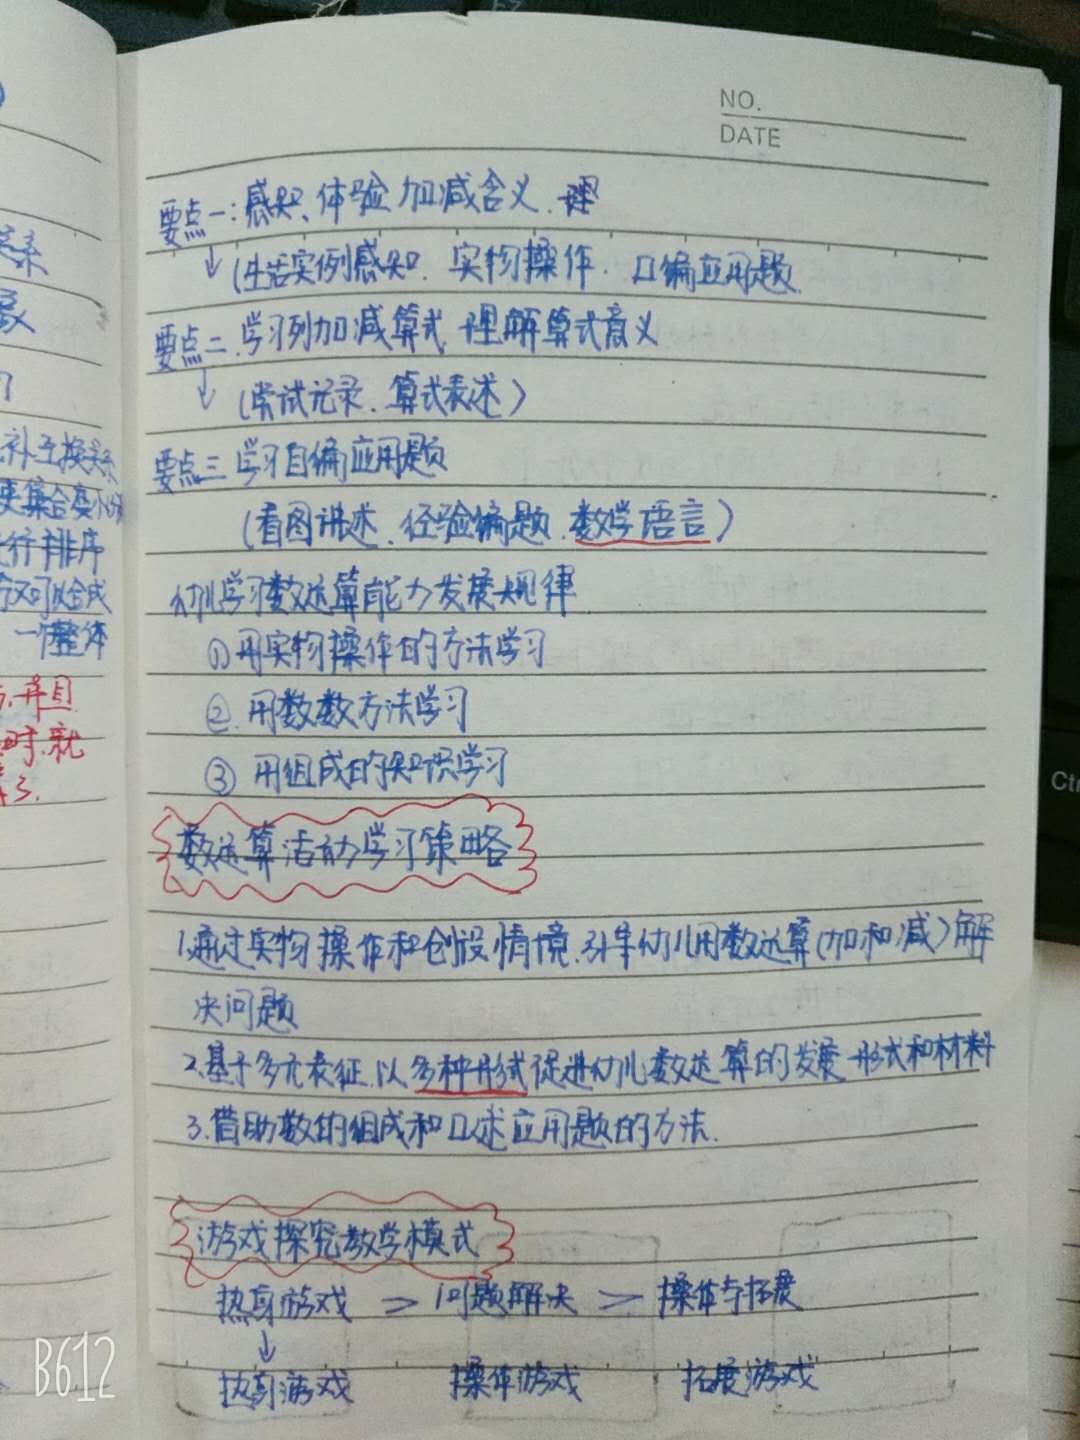 NO.
DATE
要点一:感知、体验加减含义、理
↓(生活实例感知、实物操作、口编应用题
要点二、学习列加减算式 理解算式意义
↓(尝试记录、算式表述)
要点三 学习自编应用题
(看图讲述、经验编题、数学语言)
幼儿学习数运算能力发展规律
①用实物操作的方法学习
②用数数方法学习
③用组成的知识学习
数运算活动学习策略
1.通过实物操作和创设情境、引导幼儿用数运算(加和减)解
决问题
2.基于多元表征、以多种形式促进幼儿数运算的发展 形式和材料
3.借助数的组成和口述应用题的方法.
游戏探究教学模式
热身游戏 > 问题解决 > 操作与拓展
↓
热身游戏 操作游戏 拓展游戏
补互换关系
集合
行排序
可以合成
一个整体
并且
时、就
3.
Ctr
B612